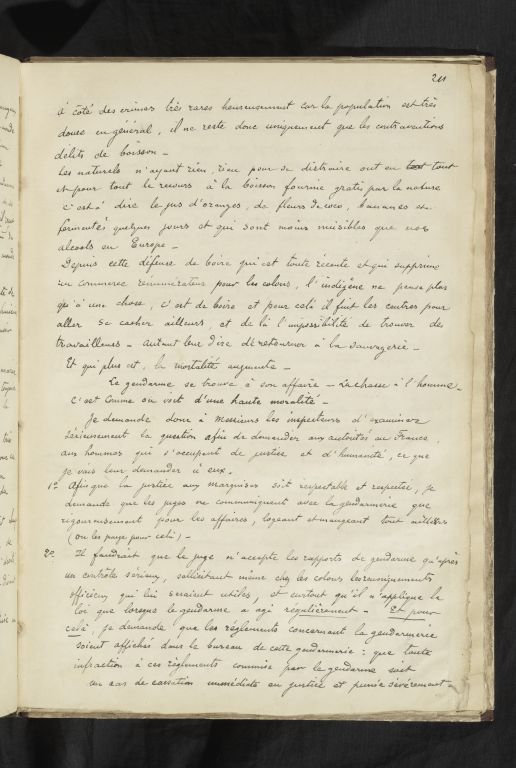 211
à côté des crimes très rares heureusement car la population est très
douce en général, il ne reste donc uniquement que les contraventions
délits de boisson –
Les naturels n'ayant rien, rien pour se distraire ont en tout tout
et pour tout le recours à la boisson fournie gratis par la nature
c'est à dire le jus d'oranges, de fleurs de coco, bananes etc.
fermentés quelques jours et qui sont moins nuisibles que nos
alcools en Europe –
Depuis cette défense de boire qui est toute récente et qui supprime
un commerce rémunérateur pour les colons, l'indigène ne pense plus
qu'à une chose, c'est de boire et pour cela il fuit les centres pour
aller se cacher ailleurs, et de là l'impossibilité de trouver des
travailleurs – Autant leur dire de retourner à la sauvagerie –
Et qui plus est, la mortalité augmente –
Le gendarme se trouve à son affaire – La chasse à l'homme –
C'est comme on voit d'une haute moralité –
Je demande donc à Messieurs les inspecteurs d'examiner
sérieusement la question afin de demander aux autorités en France,
aux hommes qui s'occupent de justice et d'humanité, ce que
je vais leur demander à eux.
1º Afin que la justice aux marquises soit respectable et respectée, je
demande que les juges ne communiquent avec la gendarmerie que
rigoureusement pour les affaires, logeant et mangeant tout ailleurs
(on les paye pour cela) –
2º Il faudrait que le juge n'accepte les rapports de gendarme qu'après
un contrôle sérieux, sollicitant même chez les colons les renseignements
officieux qui lui seraient utiles, et surtout qu'il n'applique la
loi que lorsque le gendarme a agi régulièrement – Et pour
cela, je demande que les règlements concernant la gendarmerie
soient affichés dans le bureau de cette gendarmerie : que toute
infraction à ces règlements commise par le gendarme soit
un cas de cassation immédiate en justice et punie sévèrement –